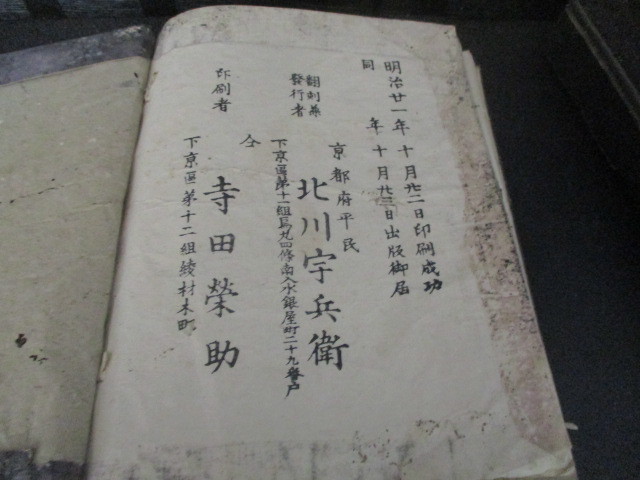 明治廿一年十月廿二日印刷成功
同年十月廿三日出版御届
京都府平民
翻刻兼
發行者
北川宇兵衛
下京區第十一組長丸四條南入水銀屋町二十九番戸
仝
印刷者
寺田榮助
下京區第十二組綾材木町